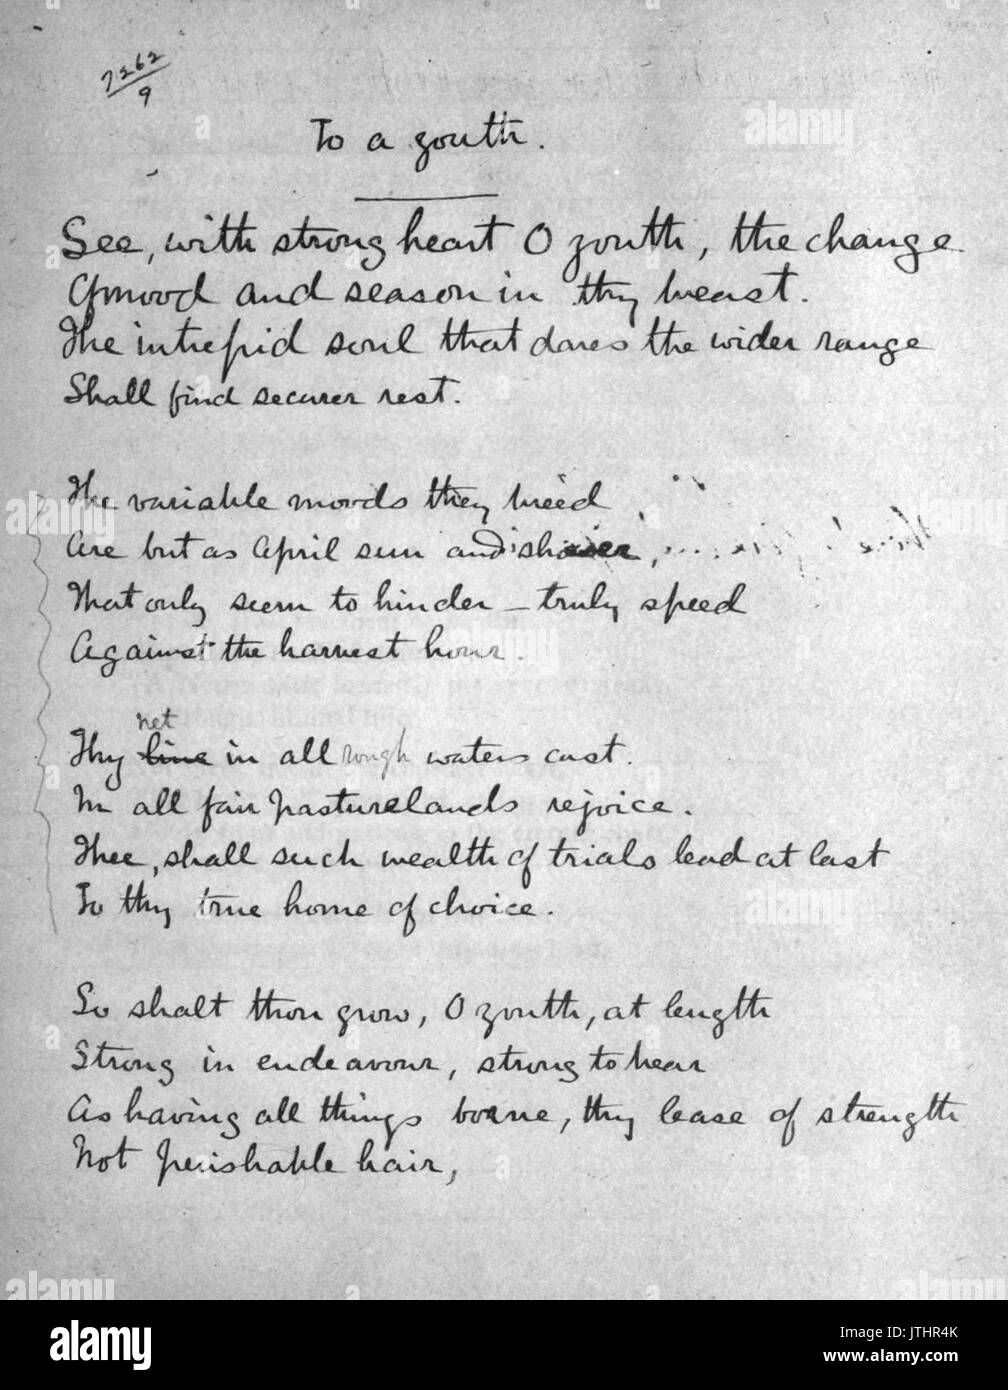 7262
9
To a youth.
See, with strong heart O youth, the change
Of mood and season in thy breast.
The intrepid soul that dares the wider range
Shall find securer rest.
The variable moods they breed
Are but as April sun and shower,
That only seem to hinder – truly speed
Against the harvest hour.
net
Thy line in all rough waters cast.
In all fair pasturelands rejoice.
Thee, shall such wealth of trials lead at last
To thy true home of choice.
So shalt thou grow, O youth, at length
Strong in endeavour, strong to bear
As having all things borne, thy lease of strength
Not perishable hair,
alamy
Image ID: JTHR4K
www.alamy.com